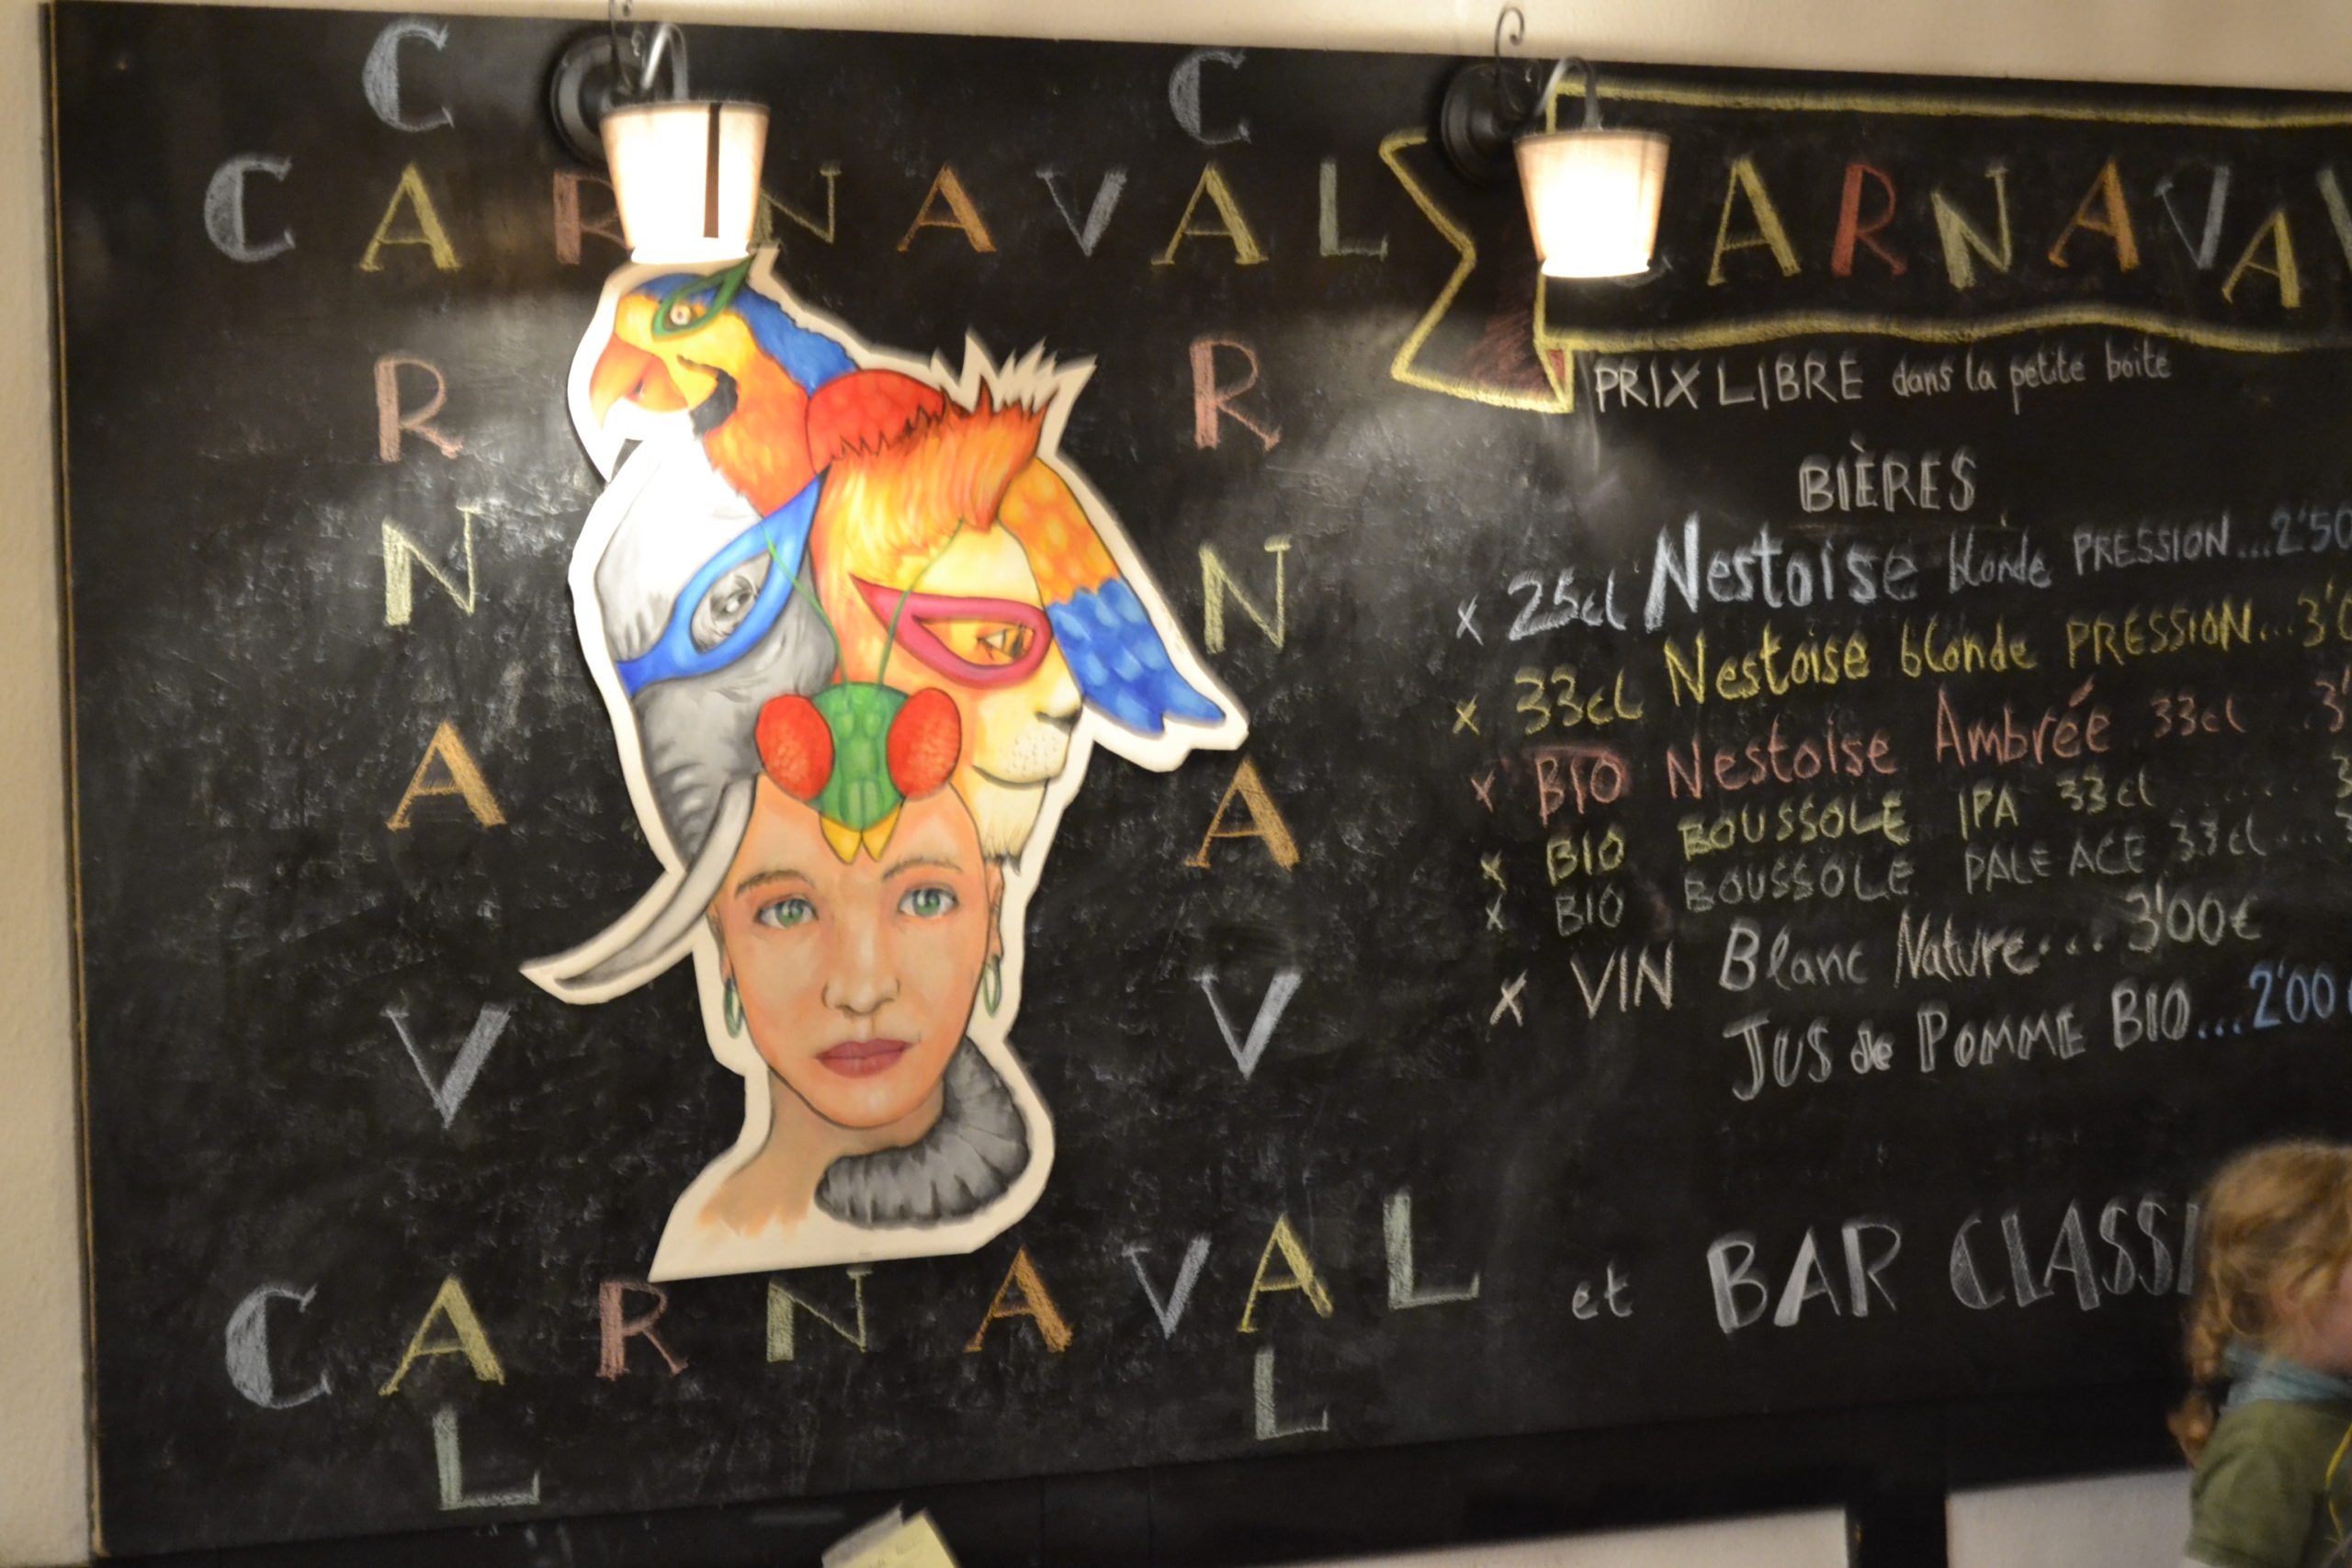 CARNAVAL
CARNAVAL
CARNAVAL
CARNAVAL
ARNAVA
PRIX LIBRE dans la petite boite
BIÈRES
x 25cl Nestoise blonde PRESSION...2'50
x 33cl Nestoise blonde PRESSION...3'
x BIO Nestoise Ambrée 33cl ..3'
x BIO BOUSSOLE IPA 33cl ...... 3
x BIO BOUSSOLE PALE ACE 33cl....
x VIN Blanc Nature... 3'00€
JUS de POMME BIO...2'00
et BAR CLASSI